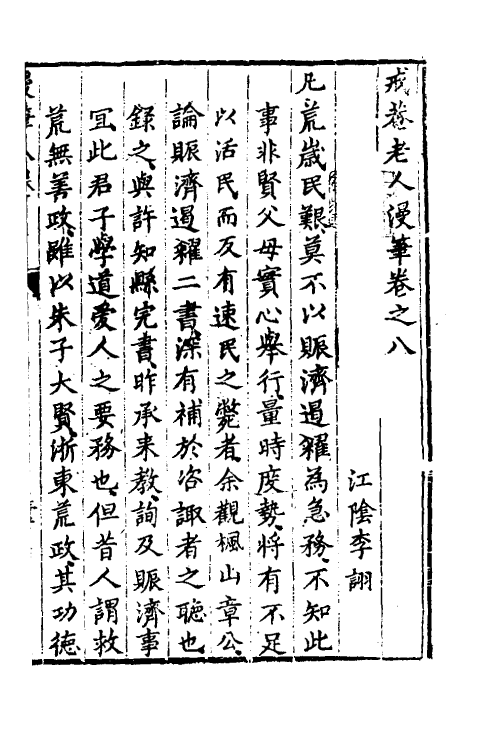 戒菴老人漫筆卷之八
江陰李詡
凡荒歲民艱莫不以賑濟遏糴為急務不知此
事非賢父母實心舉行量時度勢將有不足
以活民而反有速民之斃者余觀楓山章公
論賑濟遏糴二書深有補於咨諏者之聽也
錄之與許知縣完書昨承来教詢及賑濟事
冝此君子學道愛人之要務也但昔人謂救
荒無善政雖以朱子大賢浙東荒政其功德